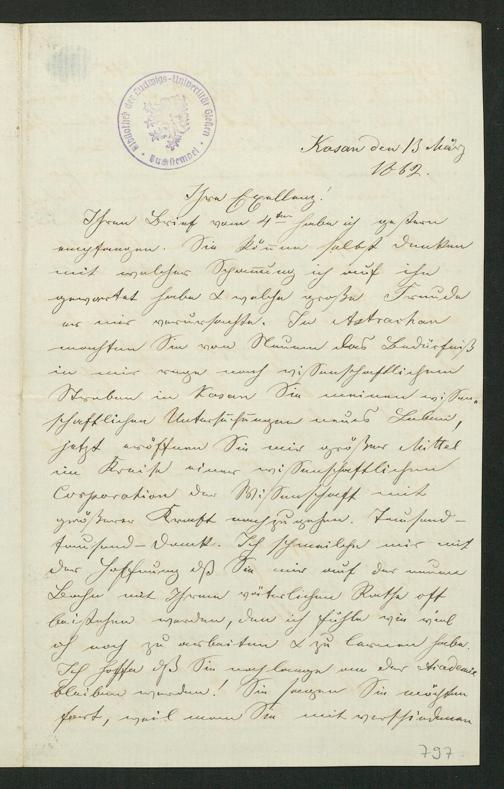 Bibliothek der Ludwigs-Universität Gießen
Buchstempel
Kasan den 13 März
1862.
Ihre Exzellenz!
Ihren Brief vom 4ten habe ich gestern
empfangen. Sie können selbst denken
mit welcher Spannung ich auf ihn
gewartet habe & welche große Freude
er mir verursachte. In Astrachan
machten Sie von Neuem das Bedürfniß
in mir rege nach wissenschaftlichem
Streben in Kasan Sie meinen wissen-
schaftlichen Untersuchungen neues Leben,
jetzt eröffnen Sie mir größer Mittel
im Kreise einer wissenschaftlichen
Corporation der Wissenschaft mit
größerer Kraft nachzugehen. Tausend-
tausend-Dank. Ich schmeichle mir mit
der Hoffnung dß Sie mir auf der neuen
Bahn mit Ihrem väterlichen Rathe oft
beistehen werden, den ich fühle wie viel
ich noch zu arbeiten & zu lernen habe.
Ich hoffe dß Sie noch lange an der Academie
bleiben werden! Sie sagen Sie möchten
fort, weil man Sie mit verschiedenen
797